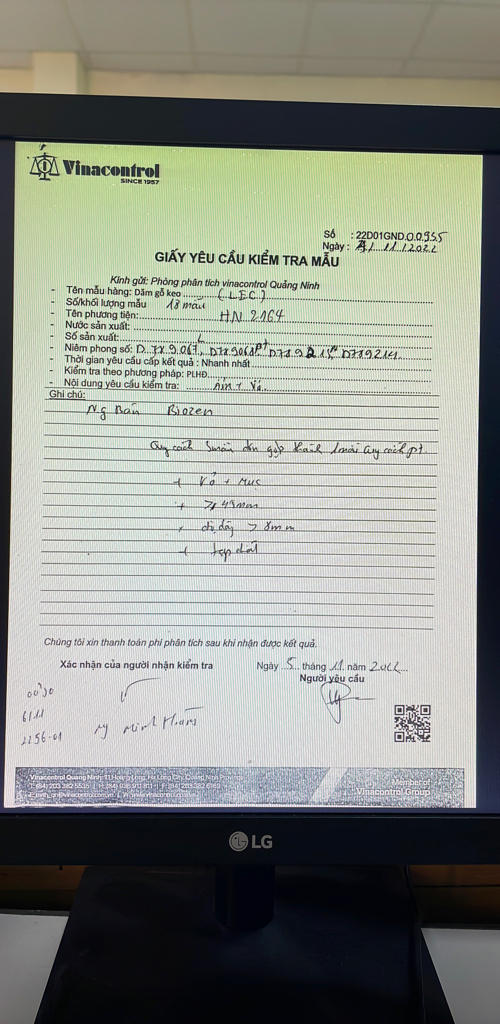 Vinacontrol
SINCE 1957
Số : 22D01GND.00955
Ngày : /11/2022
GIẤY YÊU CẦU KIỂM TRA MẪU
Kính gửi: Phòng phân tích vinacontrol Quảng Ninh
- Tên mẫu hàng: Dăm gỗ keo (LEC)
- Số/khối lượng mẫu 18 mẫu
- Tên phương tiện: HN 2164
- Nước sản xuất:
- Số sản xuất:
- Niêm phong số: D789067, D789068 D789214
- Thời gian yêu cầu cấp kết quả : Nhanh nhất
- Kiểm tra theo phương pháp: PLHĐ
- Nội dung yêu cầu kiểm tra: Ẩm + Vỏ
Ghi chú:
Ng Bán Biozen
Quy cách 3 mẫu dồn gộp thành 1 mẫu quy cách pt
+ Vỏ + Mục
+ mm
+ độ dầy > 8mm
+ tạp chất
Chúng tôi xin thanh toán phí phân tích sau khi nhận được kết quả.
Xác nhận của người nhận kiểm tra
Ngày 5 tháng 11 năm 2022
Người yêu cầu
0030
6/11
2256-01
Ng Minh
Vinacontrol Quang Ninh: 11 Hoang Long, Ha Long City, Quang Ninh
Member of
Vinacontrol Group
LG